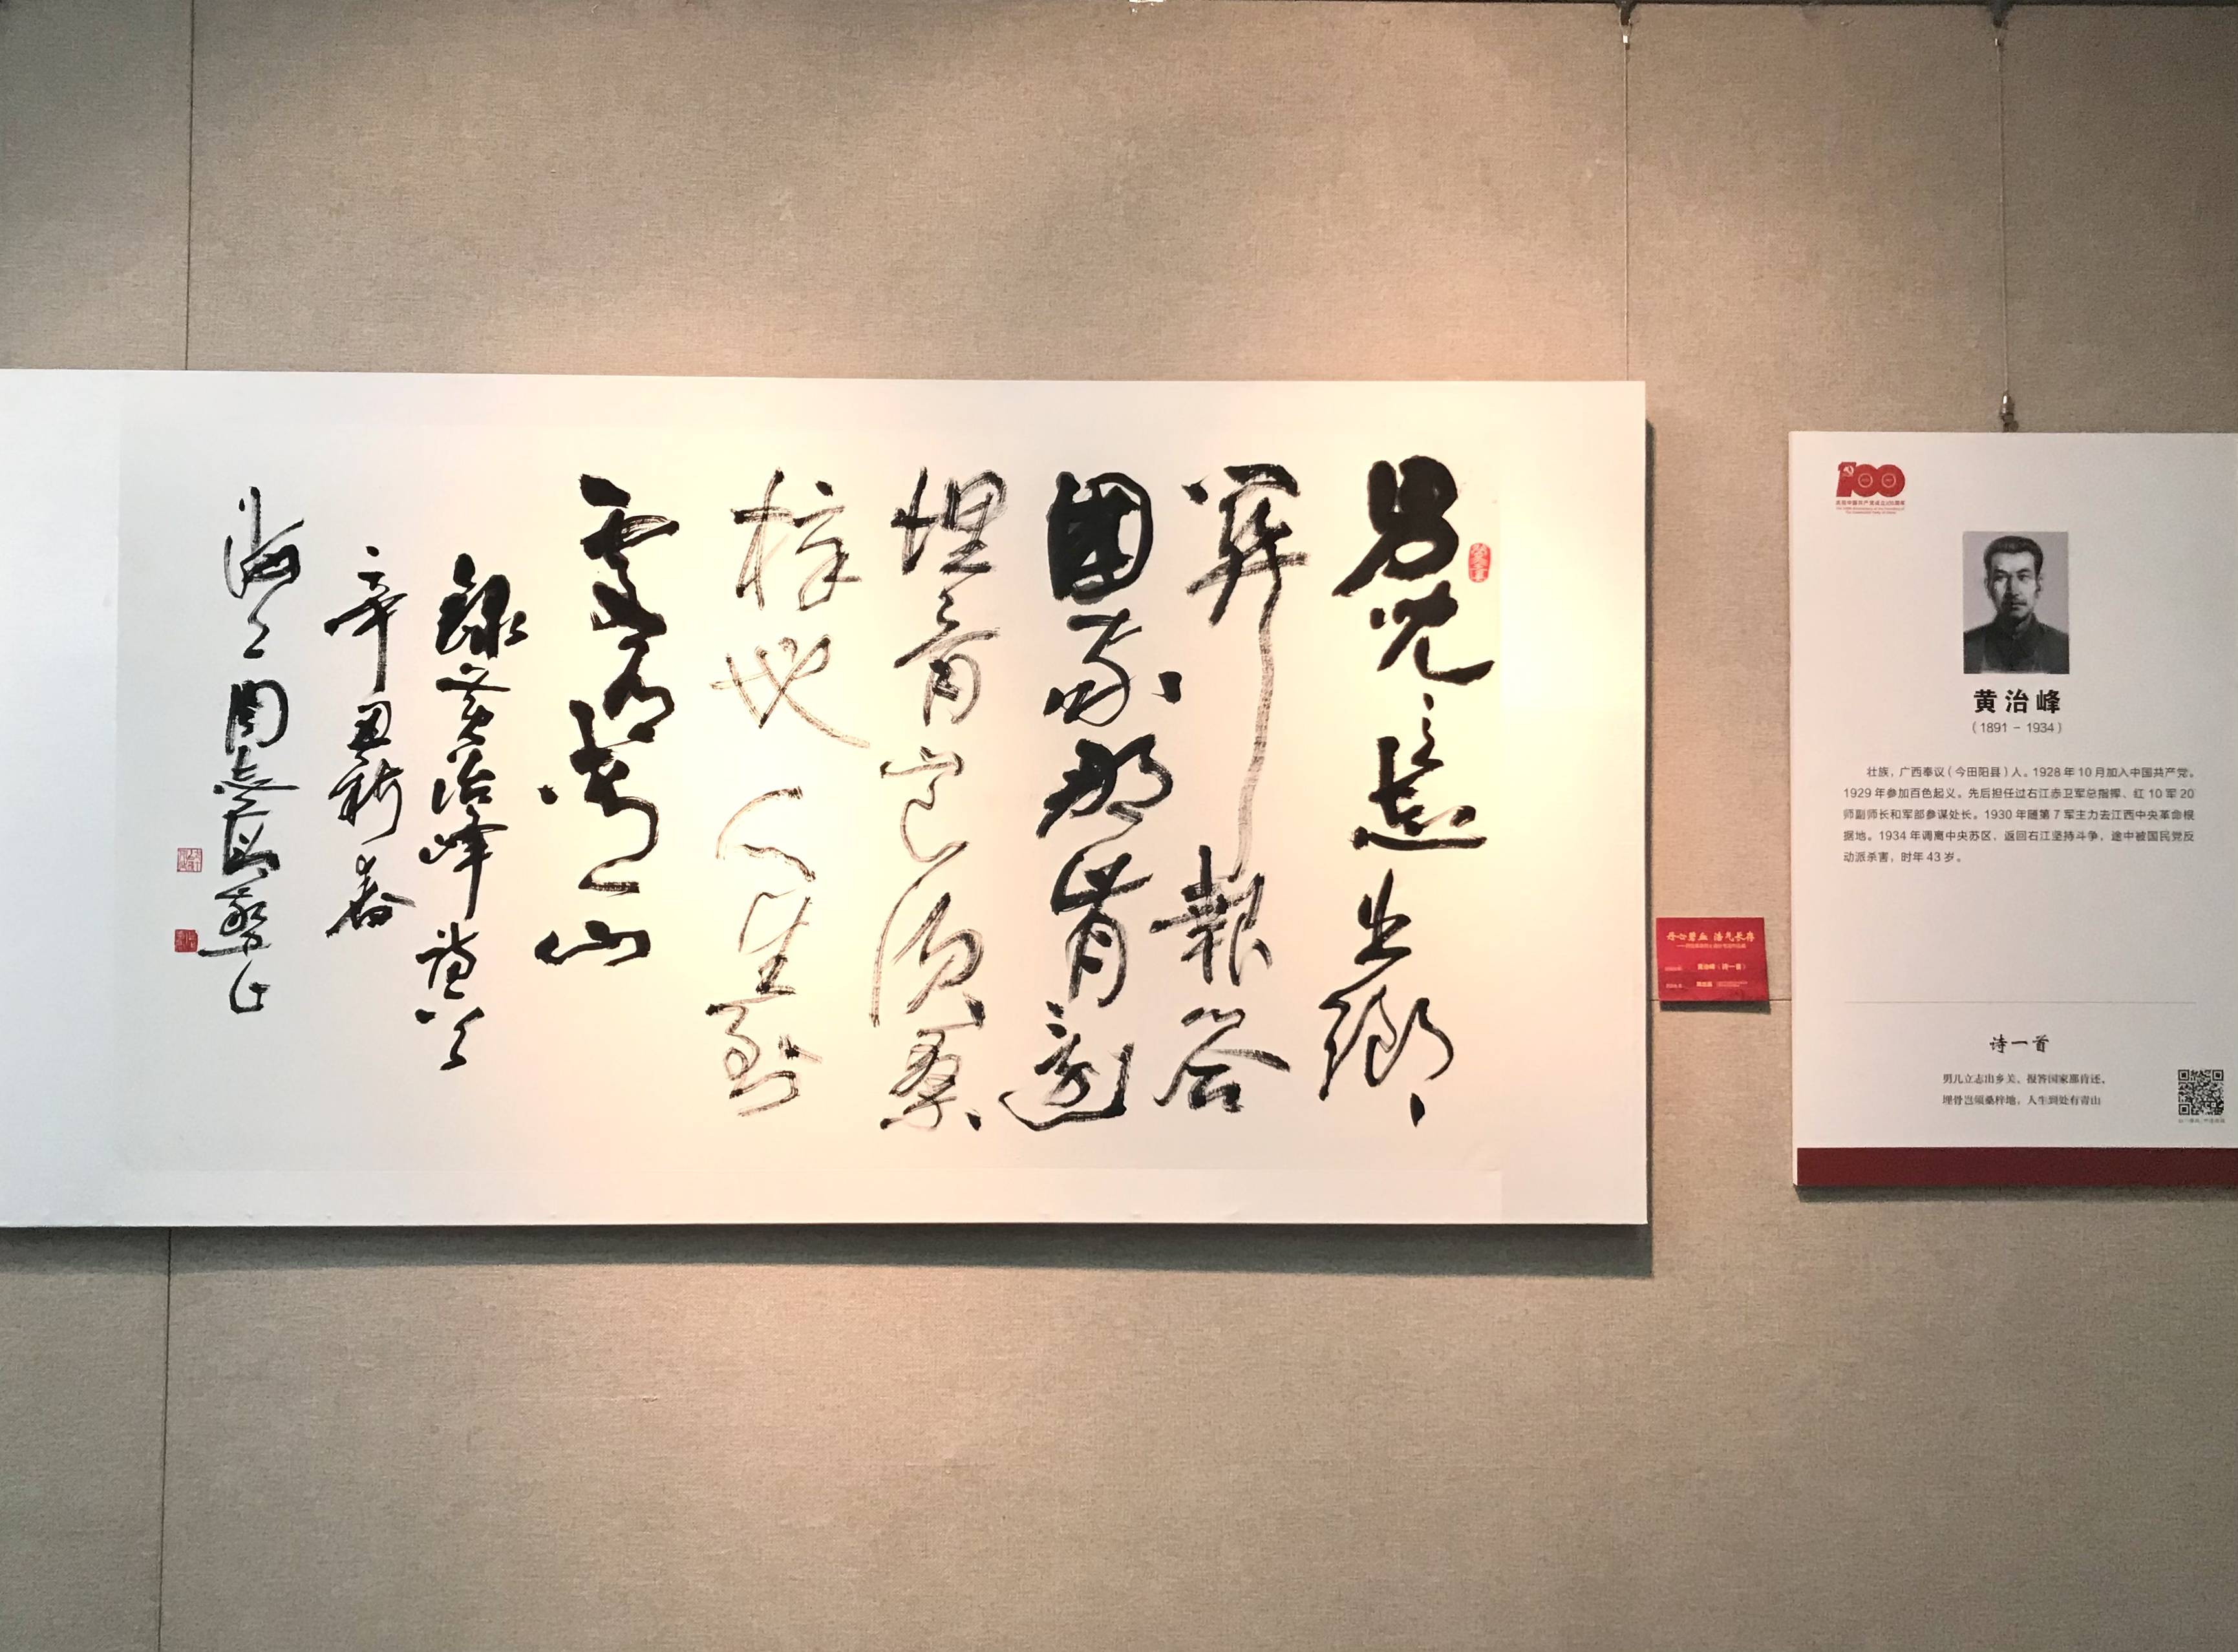 男兒立志出鄉
關報答
國家那肯還
埋骨豈須桑
梓地人生到
處有青山
錄黃治峰
辛丑新春
海上周志高
丹心碧血 浩气长存
黄治峰《诗一首》
100
庆祝中国共产党成立100周年
黄治峰
(1891 - 1934)
壮族,广西奉议(今田阳县)人。1928年10月加入中国共产党。
1929年参加百色起义。先后担任过右江赤卫军总指挥、红10军20
师副师长和军部参谋处长。1930年随第7军主力去江西中央革命根
据地。1934年调离中央苏区,返回右江坚持斗争,途中被国民党反
动派杀害,时年43岁。
诗一首
男儿立志出乡关,报答国家那肯还。
埋骨岂须桑梓地,人生到处有青山